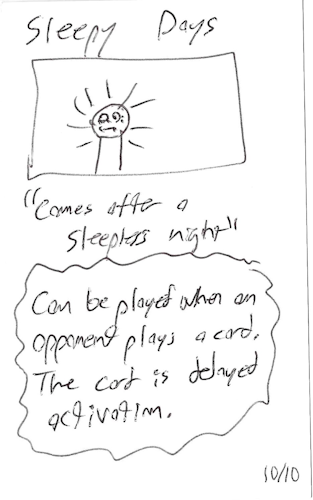 Sleepy Days
"Comes after a
Sleepless night"
Can be played when an
opponent plays a card.
The card is delayed
activation.
10/10